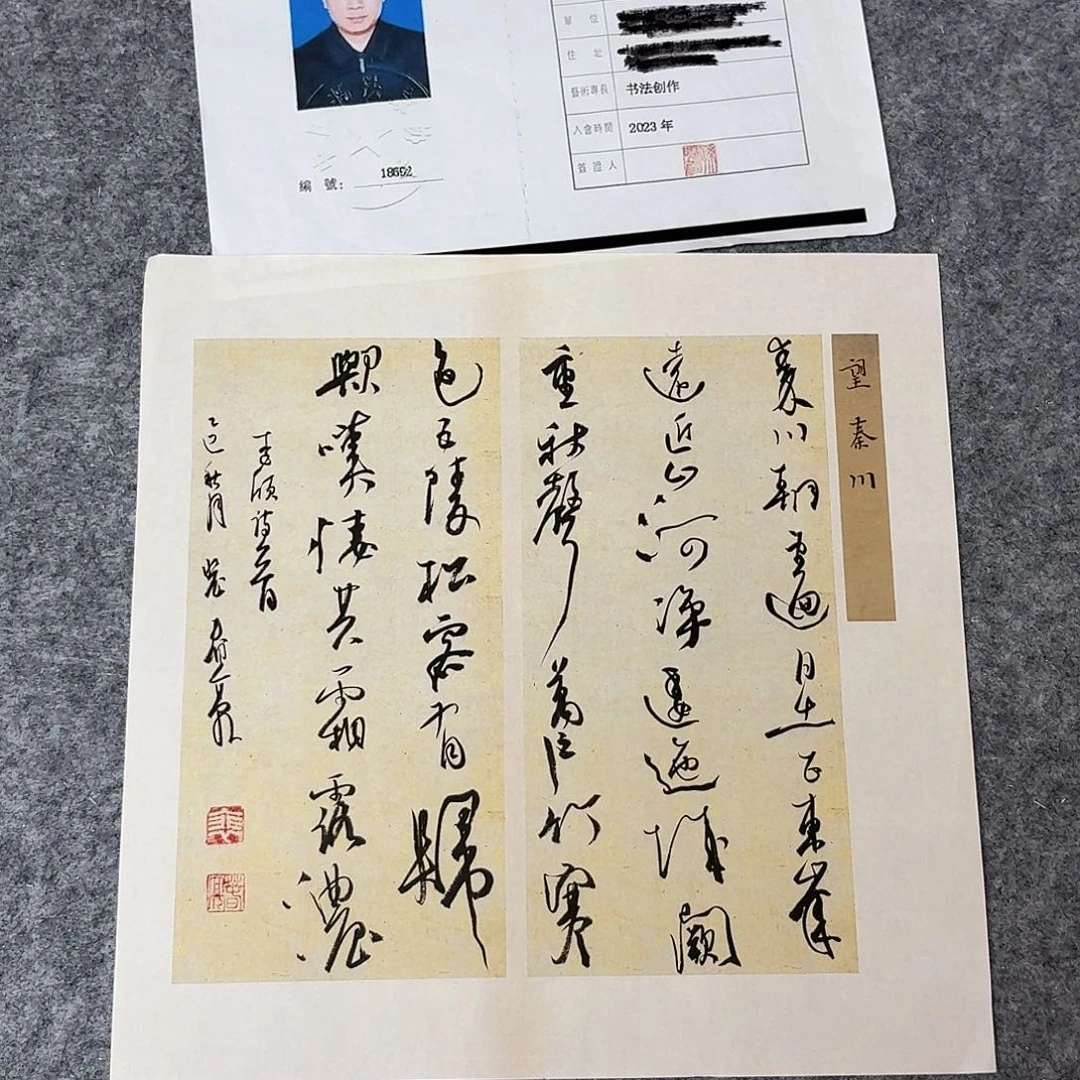 單 位
住 址
藝術專長 书法创作
入會時間 2023 年
簽證人
編 號: 18692
望秦川
秦川朝望迥日出正東峯
遠近山河淨逶迤城闕
重秋聲萬戶竹寒
色五陵松客有歸
歟嘆悽其霜露濃
李頎詩一首
乙巳秋月